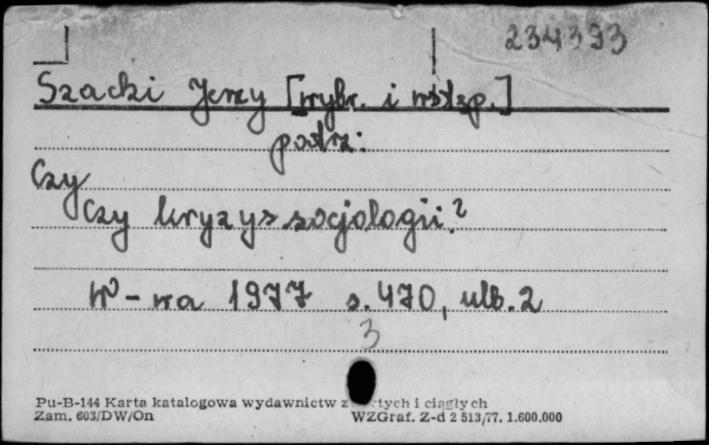 234393
Szacki Jerzy [wybr. i wstęp.]
patrz:
Czy
Czy kryzys socjologii?
W-wa 1977 s. 470, ulb. 2
3
Pu-B-144 Karta katalogowa wydawnictw z rtych i ciągłych
Zam. 603/DW/On WZGraf. Z-d 2 513/77. 1.600.000